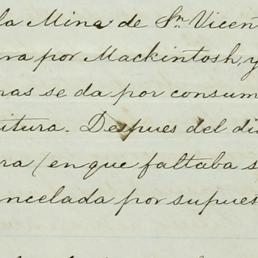 la Mina de Sn. Vicen
ra por Mackintosh, y
nas se da por consum
itura. Despues del di
ra (en que faltaba s
ncelada por supues